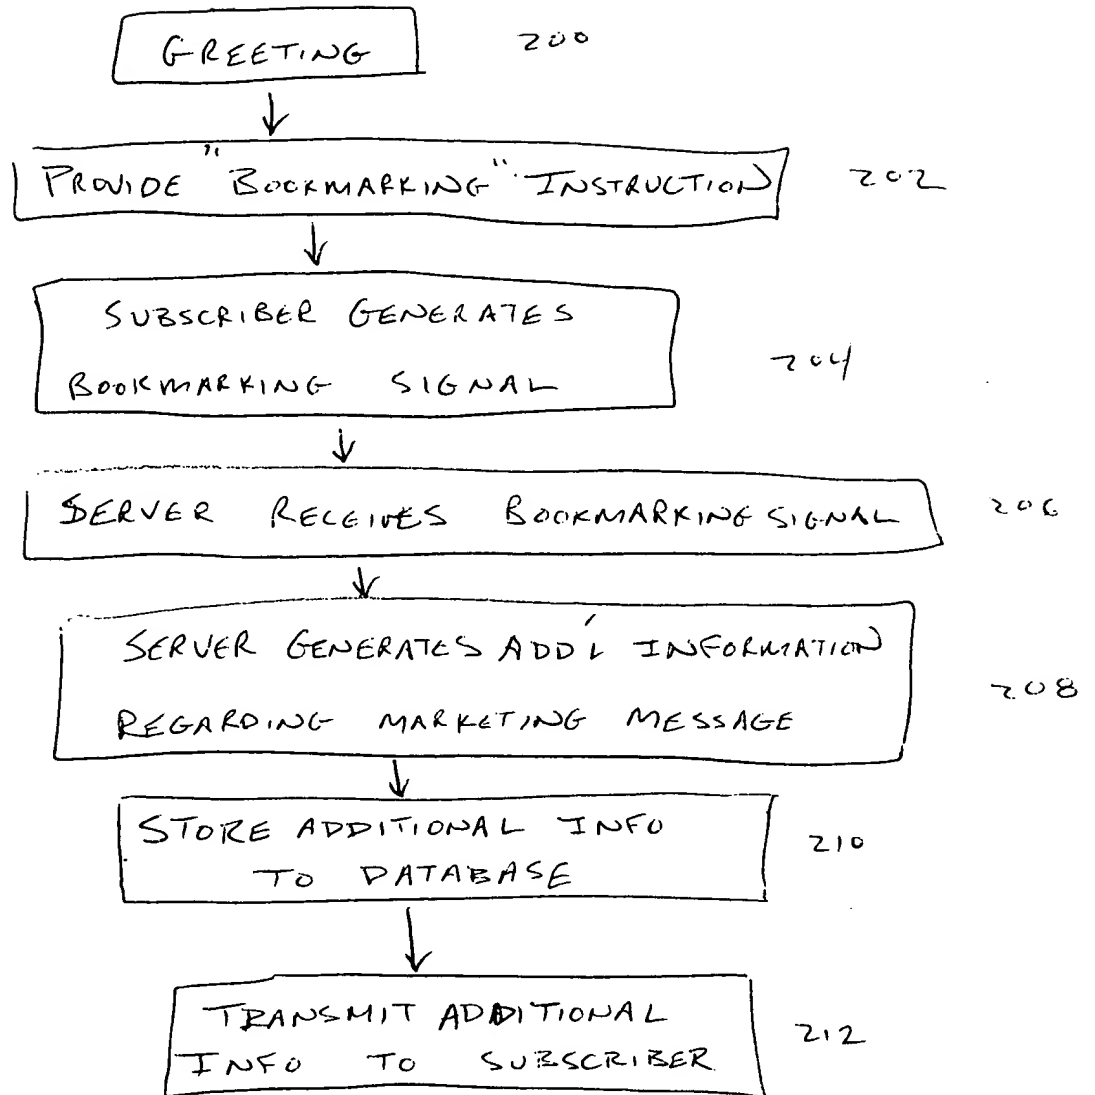 GREETING 200
PROVIDE "BOOKMARKING" INSTRUCTION 202
SUBSCRIBER GENERATES
BOOKMARKING SIGNAL 204
SERVER RECEIVES BOOKMARKING SIGNAL 206
SERVER GENERATES ADD'L INFORMATION
REGARDING MARKETING MESSAGE 208
STORE ADDITIONAL INFO 210
TO DATABASE
TRANSMIT ADDITIONAL 212
INFO TO SUBSCRIBER